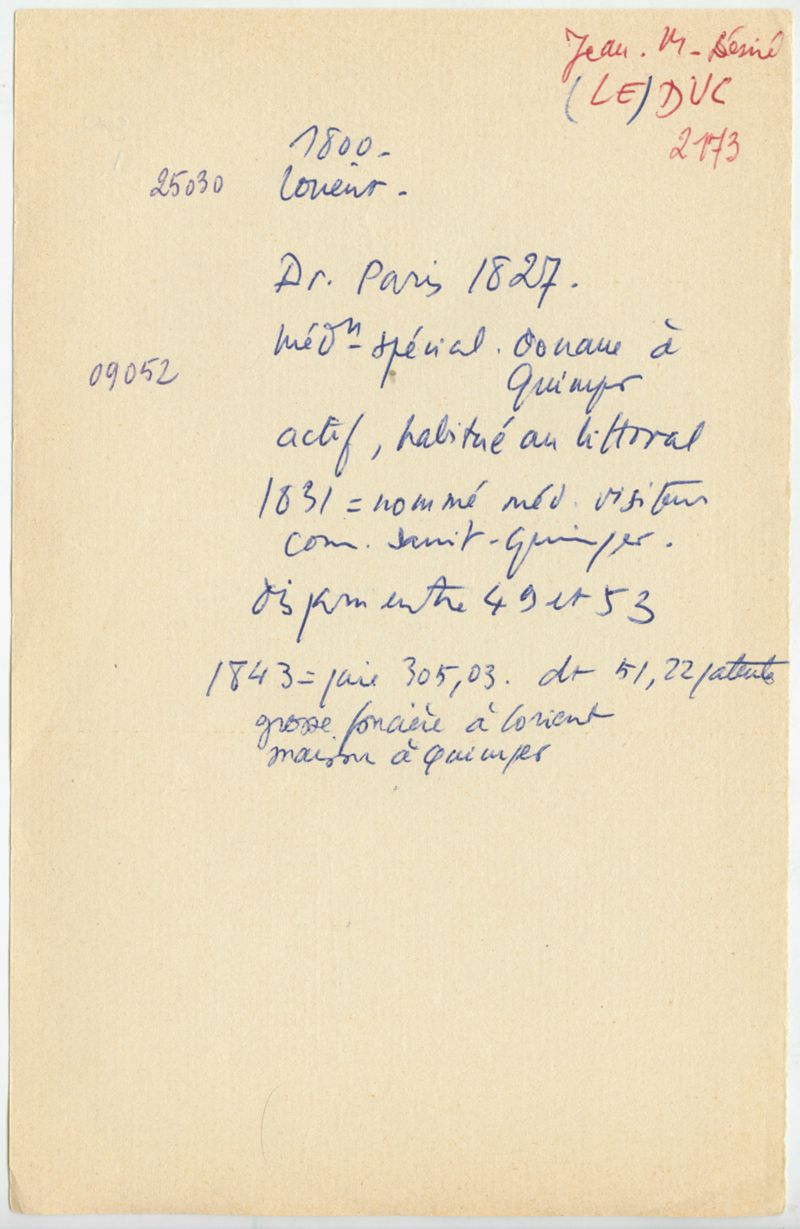 Jean. M. Désiré
(LE) DUC
2173
1800.
25030 Lorient.
Dr. Paris 1827.
Médn spécial. douane à
09052 Quimper
actif, habitué au littoral
1831 = nommé méd. visiteur
com. sanit. Quimper.
disparu entre 49 et 53
1843 = paie 305,03. dt 51,22 patente
grosse foncière à Lorient
maison à Quimper